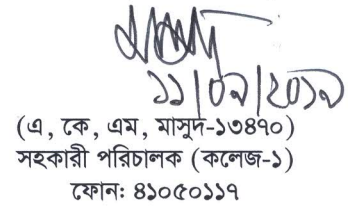 ১১/০৯/২০১৯
(এ, কে, এম, মাসুদ-১৩৪৭০)
সহকারী পরিচালক (কলেজ-১)
ফোনঃ ৪১০৫০১১৭